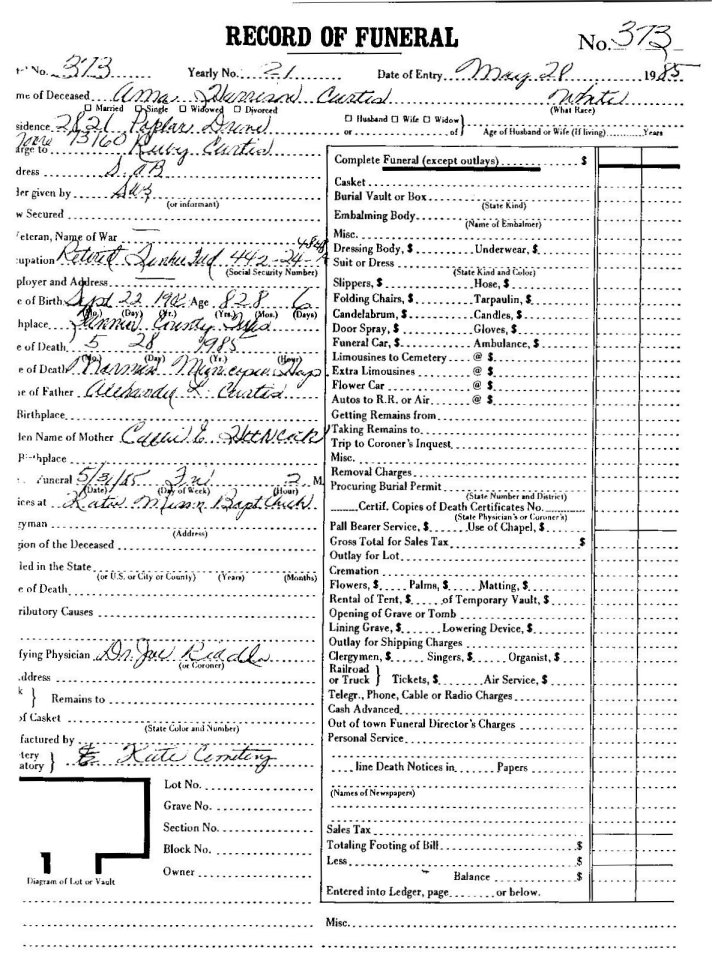 RECORD OF FUNERAL
No. 373
No. 373 Yearly No. 21 Date of Entry May 28 1985
me of Deceased Harrison Curtis White
☐ Married ☐ Single ☐ Widowed ☐ Divorced (What Race)
sidence 2821 Poplar Drive
☐ Husband ☐ Wife ☐ Widow
or of Age of Husband or Wife (If living) Years
73160
arge to Ruby Curtis
dress
der given by
(or informant)
w Secured
Veteran, Name of War
cupation Retired 442-24-
(Social Security Number)
ployer and Address
e of Birth Sept 22 1902 Age 82 8 6
(Day) (Yr.) (Yrs.) (Mos.) (Days)
hplace County
e of Death 5 28 1985
(Mo.) (Day) (Yr.) (Hour)
e of Death Norman Municipal Hosp
ne of Father Alexander L. Curtis
Birthplace
den Name of Mother Callie E.
Birthplace
Funeral 5/31/85 Fri 2 M
(Date) (Day of Week) (Hour)
ices at Katie Mission Bapt Church
gyman
(Address)
gion of the Deceased
ied in the State
(or U.S. or City or County) (Years) (Months)
e of Death
ributory Causes
fying Physician Dr. Joe Riddle
(or Coroner)
ddress
k } Remains to
of Casket
(State Color and Number)
factured by
tery } Katie Cemetery
atory }
Lot No.
Grave No.
Section No.
Block No.
Owner
Diagram of Lot or Vault
Complete Funeral (except outlays) $
Casket
Burial Vault or Box
(State Kind)
Embalming Body
(Name of Embalmer)
Misc.
Dressing Body, $ Underwear, $
Suit or Dress
(State Kind and Color)
Slippers, $ Hose, $
Folding Chairs, $ Tarpaulin, $
Candelabrum, $ Candles, $
Door Spray, $ Gloves, $
Funeral Car, $ Ambulance, $
Limousines to Cemetery @ $
Extra Limousines @ $
Flower Car @ $
Autos to R.R. or Air @ $
Getting Remains from
Taking Remains to
Trip to Coroner's Inquest
Misc.
Removal Charges
Procuring Burial Permit
(State Number and District)
Certif. Copies of Death Certificates No.
(State Physician's or Coroner's)
Pall Bearer Service, $ Use of Chapel, $
Gross Total for Sales Tax $
Outlay for Lot
Cremation
Flowers, $ Palms, $ Matting, $
Rental of Tent, $ of Temporary Vault, $
Opening of Grave or Tomb
Lining Grave, $ Lowering Device, $
Outlay for Shipping Charges
Clergymen, $ Singers, $ Organist, $
Railroad
or Truck } Tickets, $ Air Service, $
Telegr., Phone, Cable or Radio Charges
Cash Advanced
Out of town Funeral Director's Charges
Personal Service
line Death Notices in Papers
(Names of Newspapers)
Sales Tax
Totaling Footing of Bill $
Less $
Balance $
Entered into Ledger, page or below.
Misc.